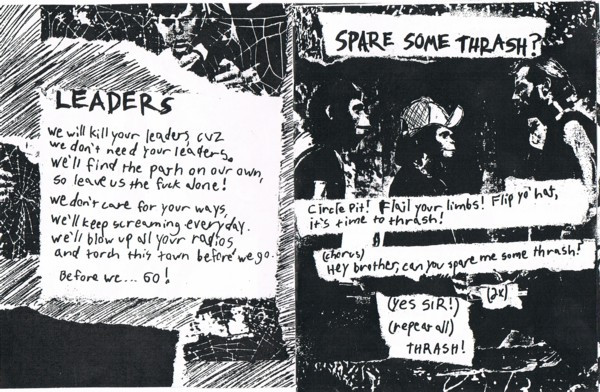 LEADERS
We will kill your leaders, cuz
we don't need your leaders.
We'll find the path on our own,
so leave us the fuck alone!
We don't care for your ways,
we'll keep screaming everyday.
we'll blow up all your radios
and torch this town before we go.
Before we... GO!
SPARE SOME THRASH?
Circle Pit! Flail your limbs! Flip yo' hat,
it's time to thrash!
(chorus)
Hey brother, can you spare me some thrash?
(2x)
(Yes SIR!)
(repeat all)
THRASH!